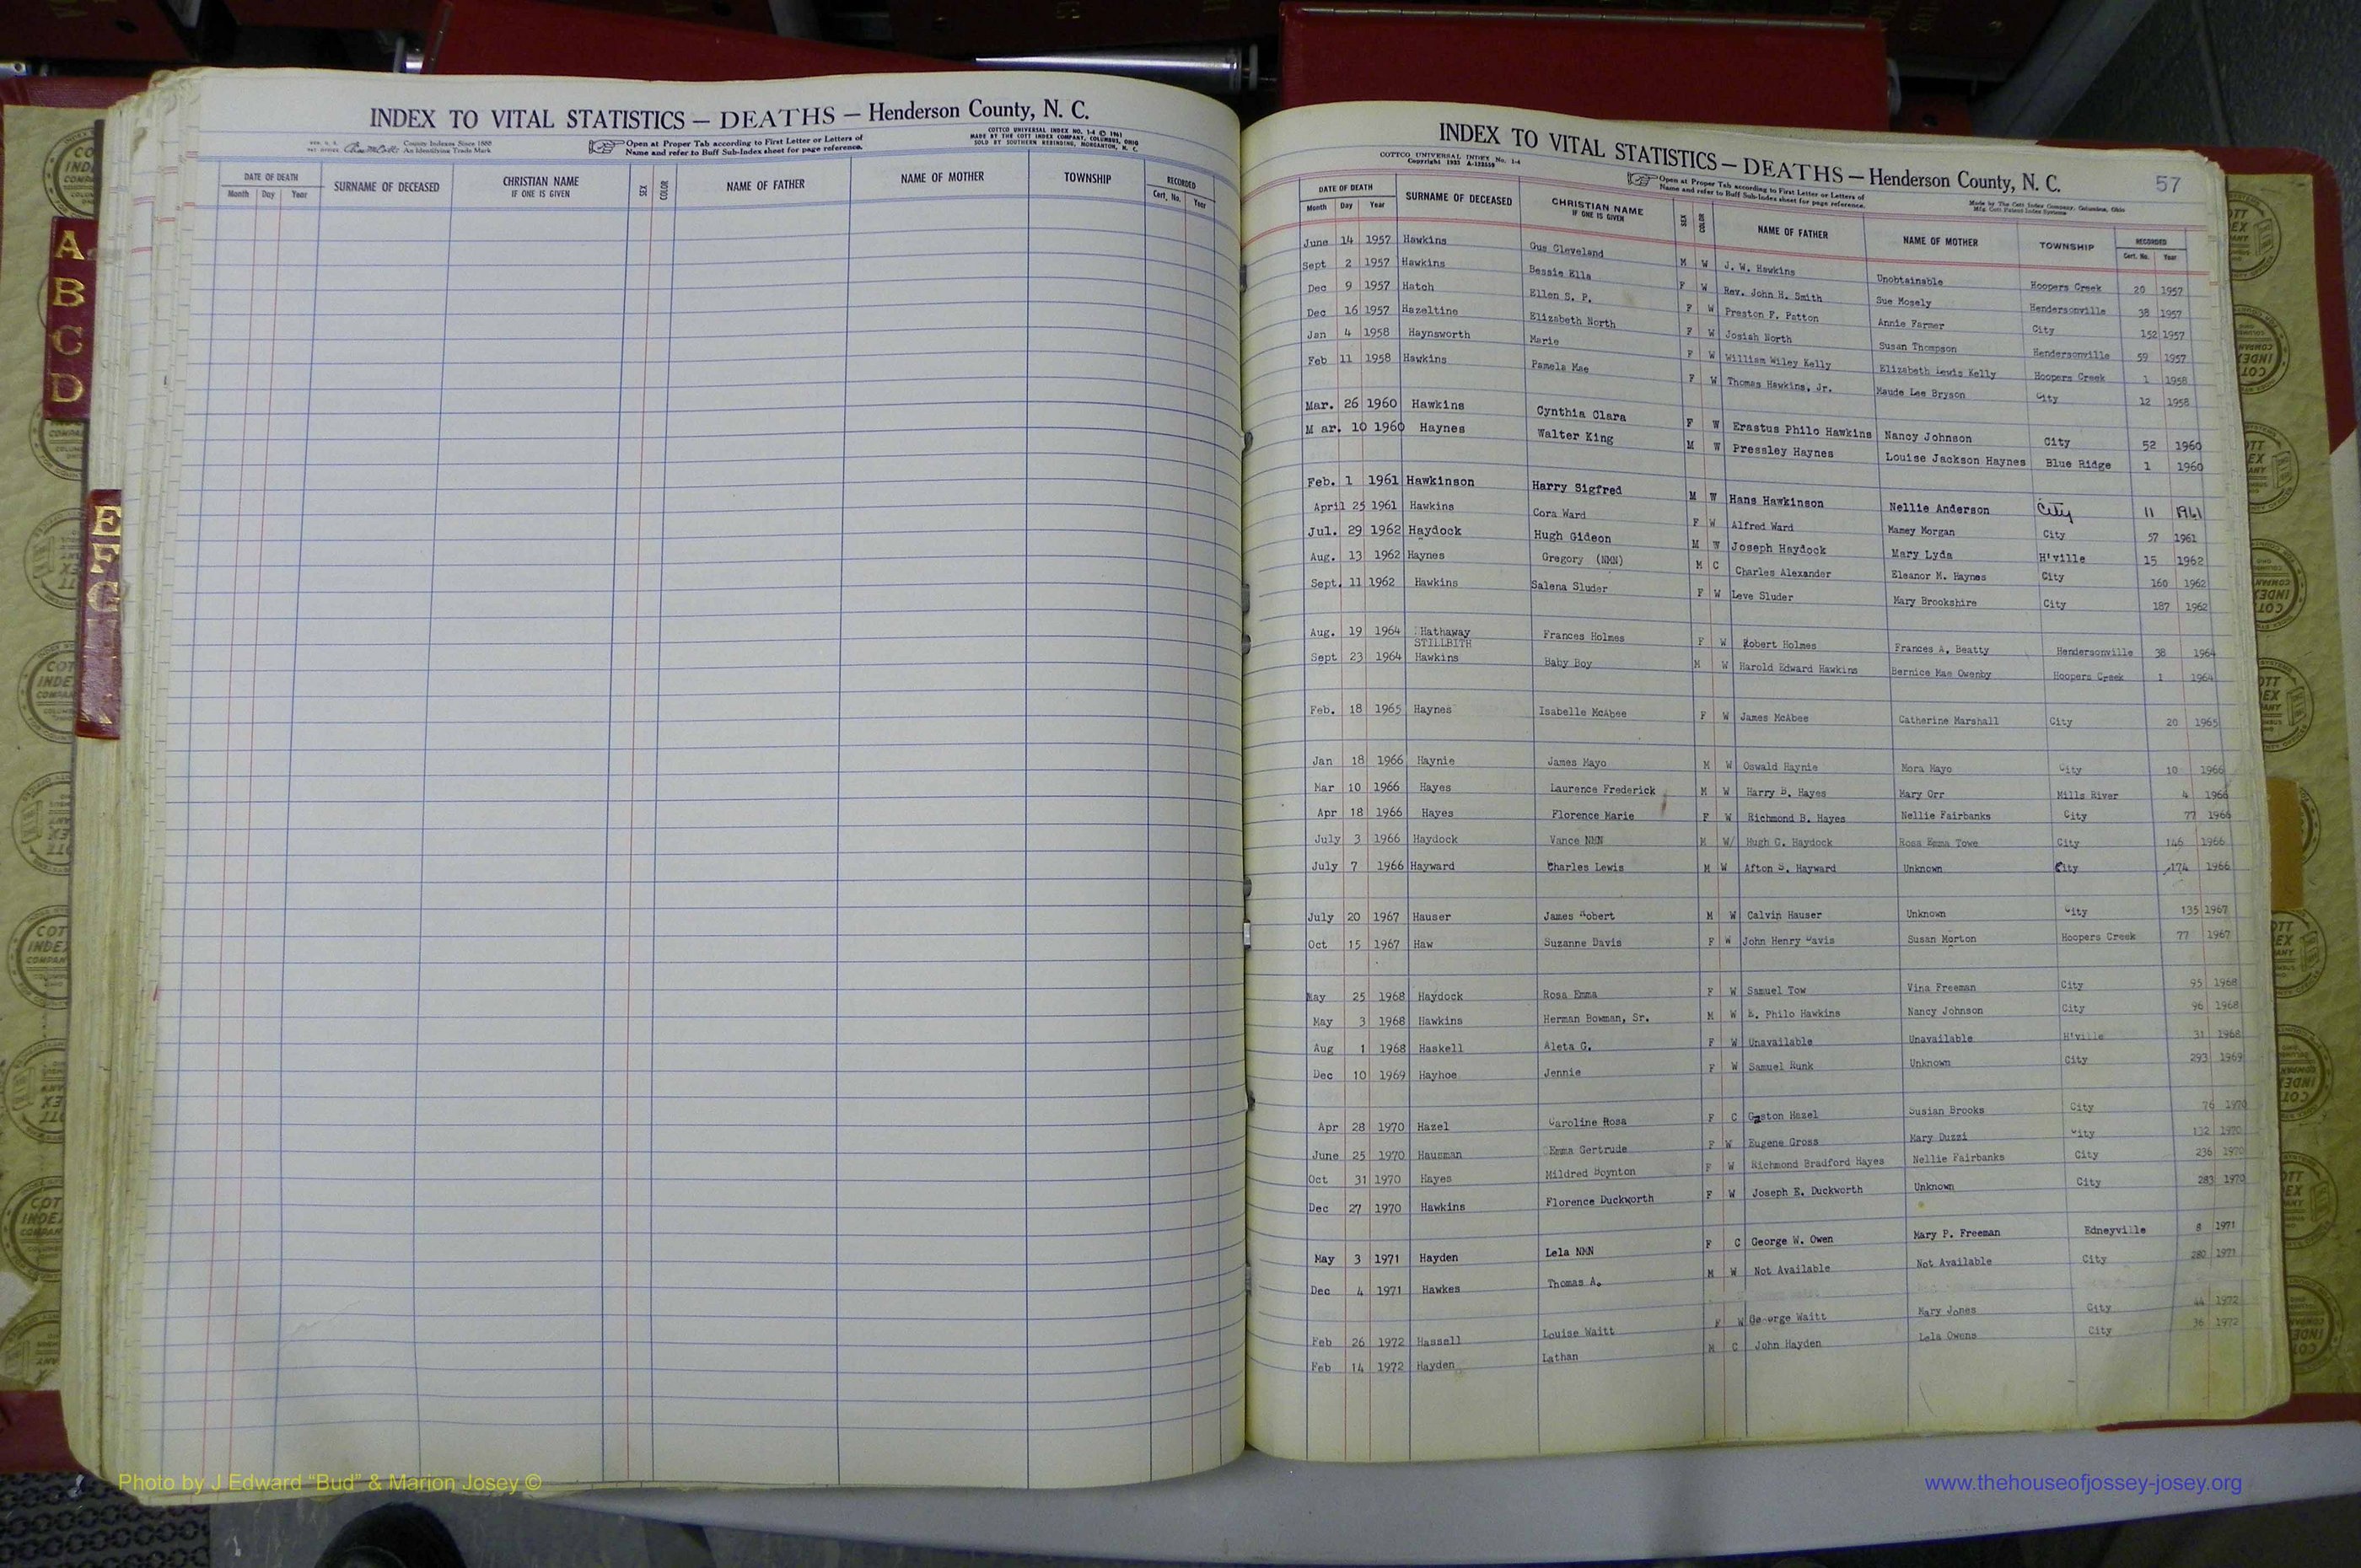 INDEX TO VITAL STATISTICS — DEATHS — Henderson County, N. C.
County Indexes Since 1888
An Identifying Trade Mark
Open at Proper Tab according to First Letter or Letters of
Name and refer to Buff Sub-Index sheet for page reference.
COTTCO UNIVERSAL INDEX NO. 1-4 © 1961
MADE BY THE COTT INDEX COMPANY, COLUMBUS, OHIO
SOLD BY SOUTHERN REBINDING, MORGANTON, N. C.
DATE OF DEATH
Month Day Year
SURNAME OF DECEASED
CHRISTIAN NAME
IF ONE IS GIVEN
SEX
COLOR
NAME OF FATHER
NAME OF MOTHER
TOWNSHIP
RECORDED
Cert. No. Year
A
B
C
D
E
F
G
INDEX TO VITAL STATISTICS — DEATHS — Henderson County, N. C.
57
COTTCO UNIVERSAL INDEX No. 1-4
Open at Proper Tab according to First Letter or Letters of
Name and refer to Buff Sub-Index sheet for page reference.
Made by The Cott Index Company, Columbus, Ohio
DATE OF DEATH
Month Day Year
SURNAME OF DECEASED
CHRISTIAN NAME
IF ONE IS GIVEN
SEX
COLOR
NAME OF FATHER
NAME OF MOTHER
TOWNSHIP
RECORDED
Cert. No. Year
June 14 1957 Hawkins Gus Cleveland M W J. W. Hawkins Unobtainable Hoopers Creek 20 1957
Sept 2 1957 Hawkins Bessie Ella F W Rev. John H. Smith Sue Mosely Hendersonville 38 1957
Dec 9 1957 Hatch Ellen S. P. F W Preston F. Patton Annie Farmer City 152 1957
Dec 16 1957 Hazeltine Elizabeth North F W Josiah North Susan Thompson Hendersonville 59 1957
Jan 4 1958 Haynsworth Marie F W William Wiley Kelly Elizabeth Lewis Kelly Hoopers Creek 1 1958
Feb 11 1958 Hawkins Pamela Mae F W Thomas Hawkins, Jr. Maude Lee Bryson City 12 1958
Mar. 26 1960 Hawkins Cynthia Clara F W Erastus Philo Hawkins Nancy Johnson City 52 1960
M ar. 10 1960 Haynes Walter King M W Pressley Haynes Louise Jackson Haynes Blue Ridge 1 1960
Feb. 1 1961 Hawkinson Harry Sigfred M W Hans Hawkinson Nellie Anderson City 11 1961
April 25 1961 Hawkins Cora Ward F W Alfred Ward Mamey Morgan City 57 1961
Jul. 29 1962 Haydock Hugh Gideon M W Joseph Haydock Mary Lyda H'ville 15 1962
Aug. 13 1962 Haynes Gregory (NMN) M C Charles Alexander Eleanor M. Haynes City 160 1962
Sept. 11 1962 Hawkins Salena Sluder F W Leve Sluder Mary Brookshire City 187 1962
Aug. 19 1964 Hathaway Frances Holmes F W Robert Holmes Frances A. Beatty Hendersonville 38 1964
STILLBITH
Sept 23 1964 Hawkins Baby Boy M W Harold Edward Hawkins Bernice Mae Owenby Hoopers Creek 1 1964
Feb. 18 1965 Haynes Isabelle McAbee F W James McAbee Catherine Marshall City 20 1965
Jan 18 1966 Haynie James Mayo M W Oswald Haynie Mora Mayo City 10 1966
Mar 10 1966 Hayes Laurence Frederick M W Harry B. Hayes Mary Orr Mills River 4 1966
Apr 18 1966 Hayes Florence Marie F W Richmond B. Hayes Nellie Fairbanks City 77 1966
July 3 1966 Haydock Vance NMN M W/ Hugh G. Haydock Rosa Emma Towe City 146 1966
July 7 1966 Hayward Charles Lewis M W Afton S. Hayward Unknown City 174 1966
July 20 1967 Hauser James Robert M W Calvin Hauser Unknown City 135 1967
Oct 15 1967 Haw Suzanne Davis F W John Henry Davis Susan Morton Hoopers Creek 77 1967
May 25 1968 Haydock Rosa Emma F W Samuel Tow Vina Freeman City 95 1968
May 3 1968 Hawkins Herman Bowman, Sr. M W E. Philo Hawkins Nancy Johnson City 96 1968
Aug 1 1968 Haskell Aleta G. F W Unavailable Unavailable H'ville 31 1968
Dec 10 1969 Hayhoe Jennie F W Samuel Runk Unknown City 293 1969
Apr 28 1970 Hazel Caroline Rosa F C Gaston Hazel Susian Brooks City 76 1970
June 25 1970 Hausman Emma Gertrude F W Eugene Gross Mary Duzzi City 132 1970
Oct 31 1970 Hayes Mildred Boynton F W Richmond Bradford Hayes Nellie Fairbanks City 236 1970
Dec 27 1970 Hawkins Florence Duckworth F W Joseph E. Duckworth Unknown City 283 1970
May 3 1971 Hayden Lela NMN F C George W. Owen Mary P. Freeman Edneyville 8 1971
Dec 4 1971 Hawkes Thomas A. M W Not Available Not Available City 280 1971
Feb 26 1972 Hassell Louise Waitt F W George Waitt Mary Jones City 44 1972
Feb 14 1972 Hayden Lathan M C John Hayden Lela Owens City 36 1972
Photo by J Edward “Bud” & Marion Josey ©
www.thehouseofjossey-josey.org